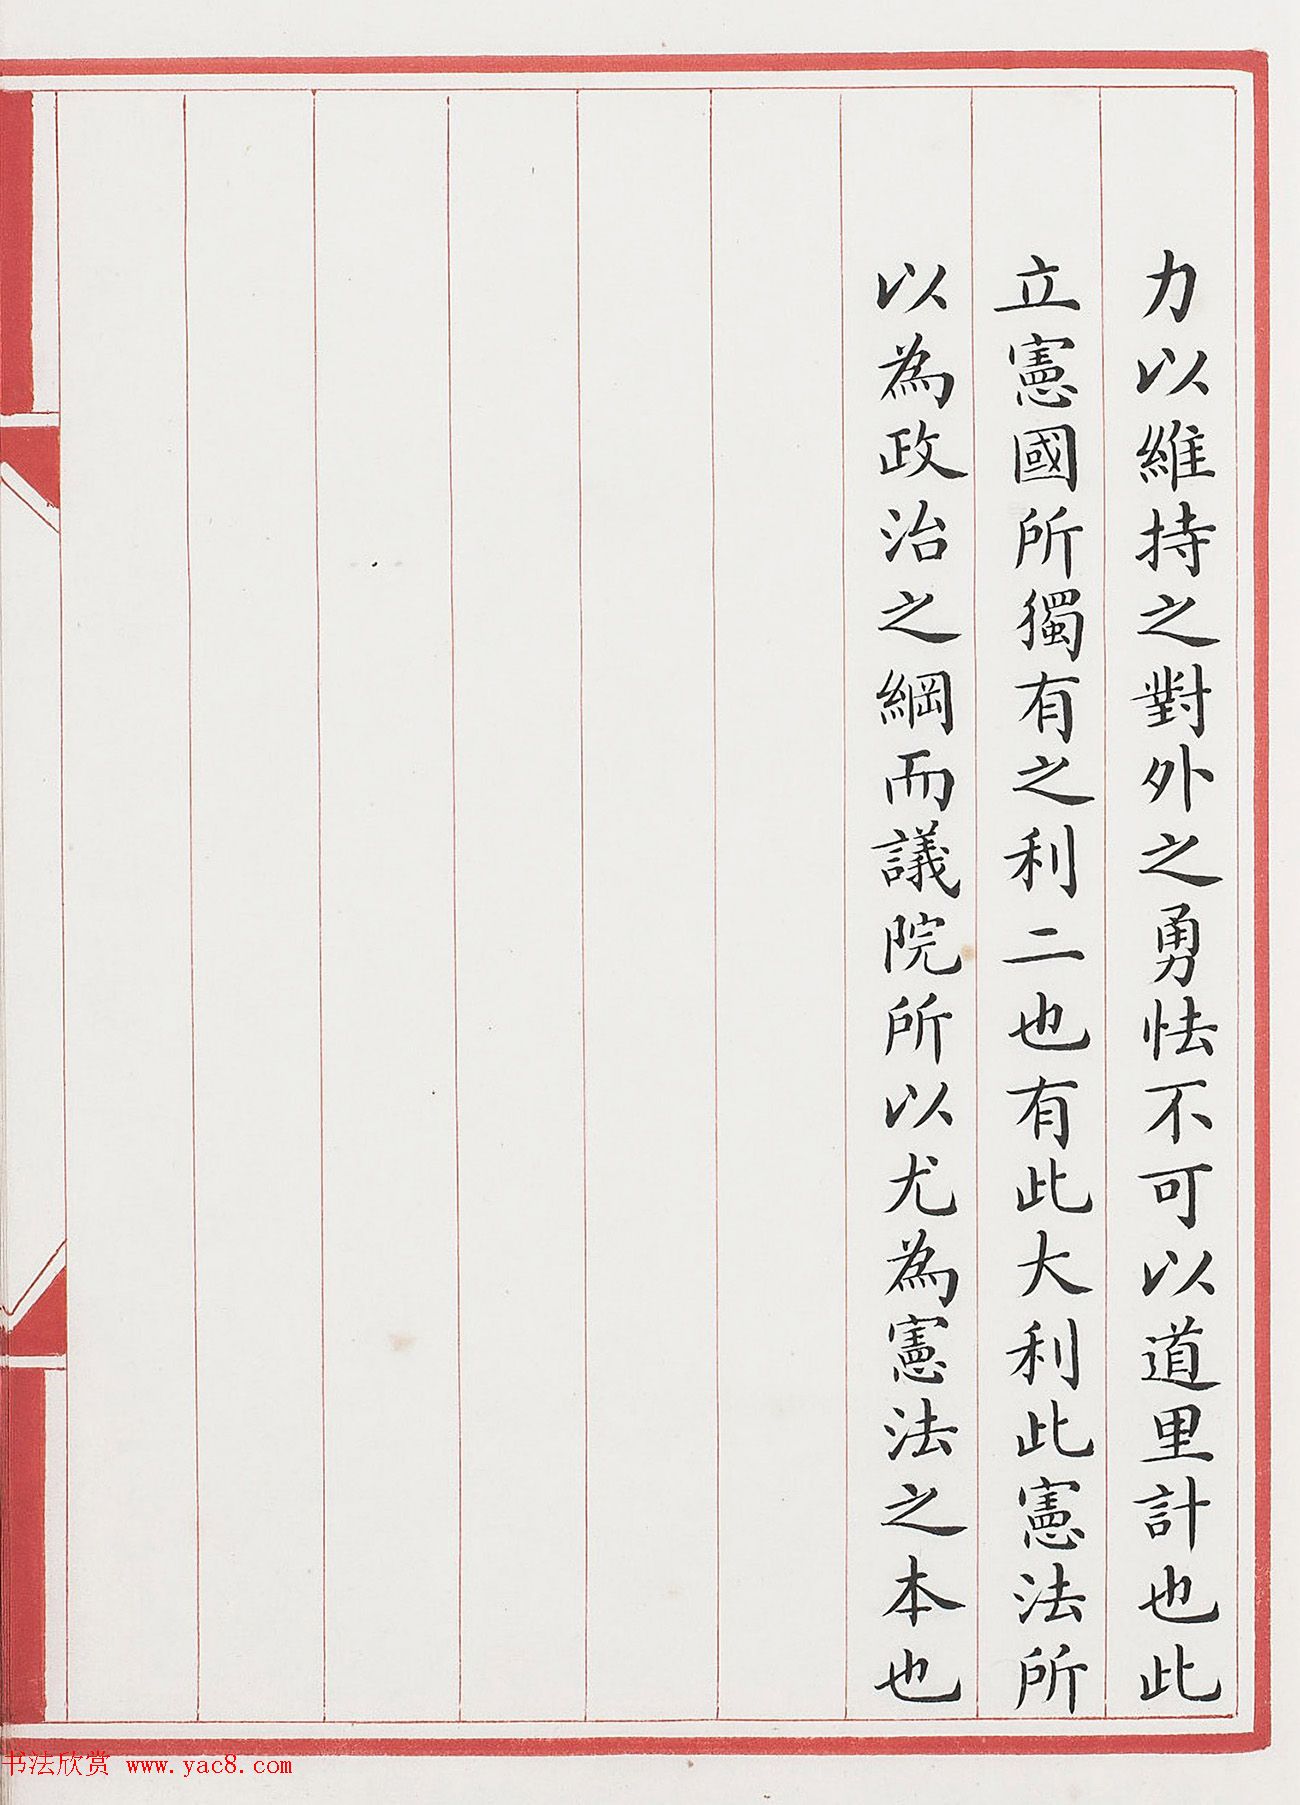 力以維持之對外之勇怯不可以道里計也此
立憲國所獨有之利二也有此大利此憲法所
以為政治之綱而議院所以尤為憲法之本也
书法欣赏 www.yac8.com